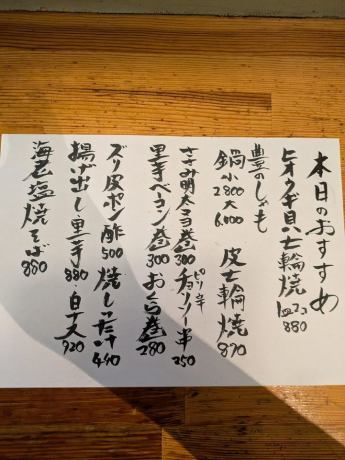 本日のおすすめ
ヒオウギ貝七輪焼 1皿2コ 880
豊のしゃも
鍋 小2800 大6,000 皮七輪焼 890
ささみ明太ヨ巻 300 ピリ辛チョリソー串 250
里芋ベーコン巻 300 おくら巻 280
ズリ皮ポン酢 500 焼しいたけ 490
揚げ出し・里芋 880・白子 920
海老塩焼そば 880